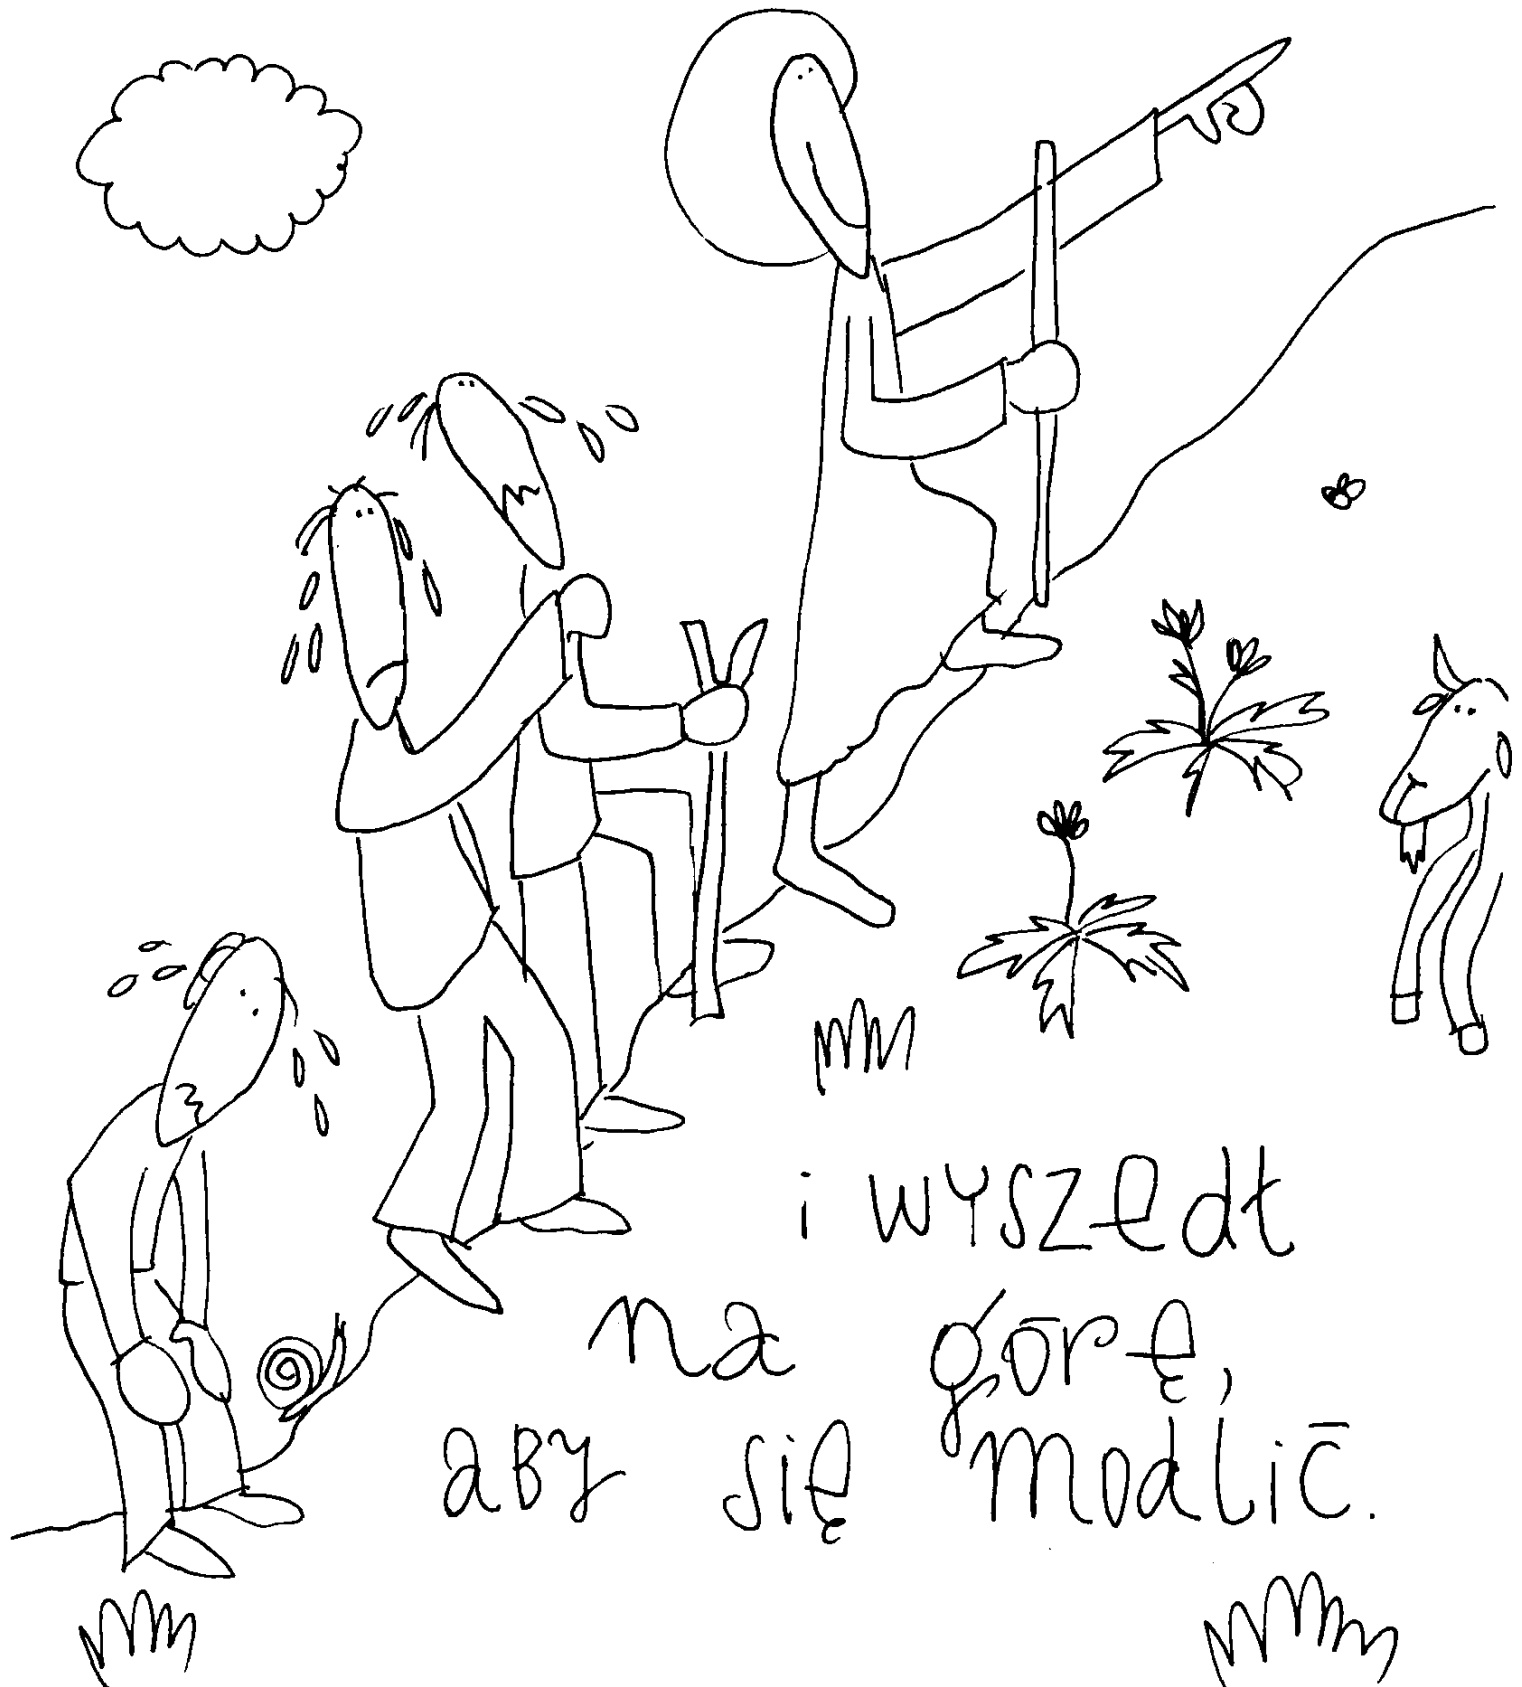 i wyszedł
na górę,
aby się modlić.